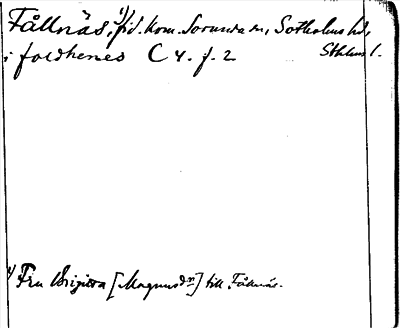 Fållnäs,¹) frd. kom. Sorunda sn, Sotholms hd,
i foldhenes C 4. f. 2 Sthlms l.
¹) Fru Birgitta [Magnusdn] till Fållnäs.